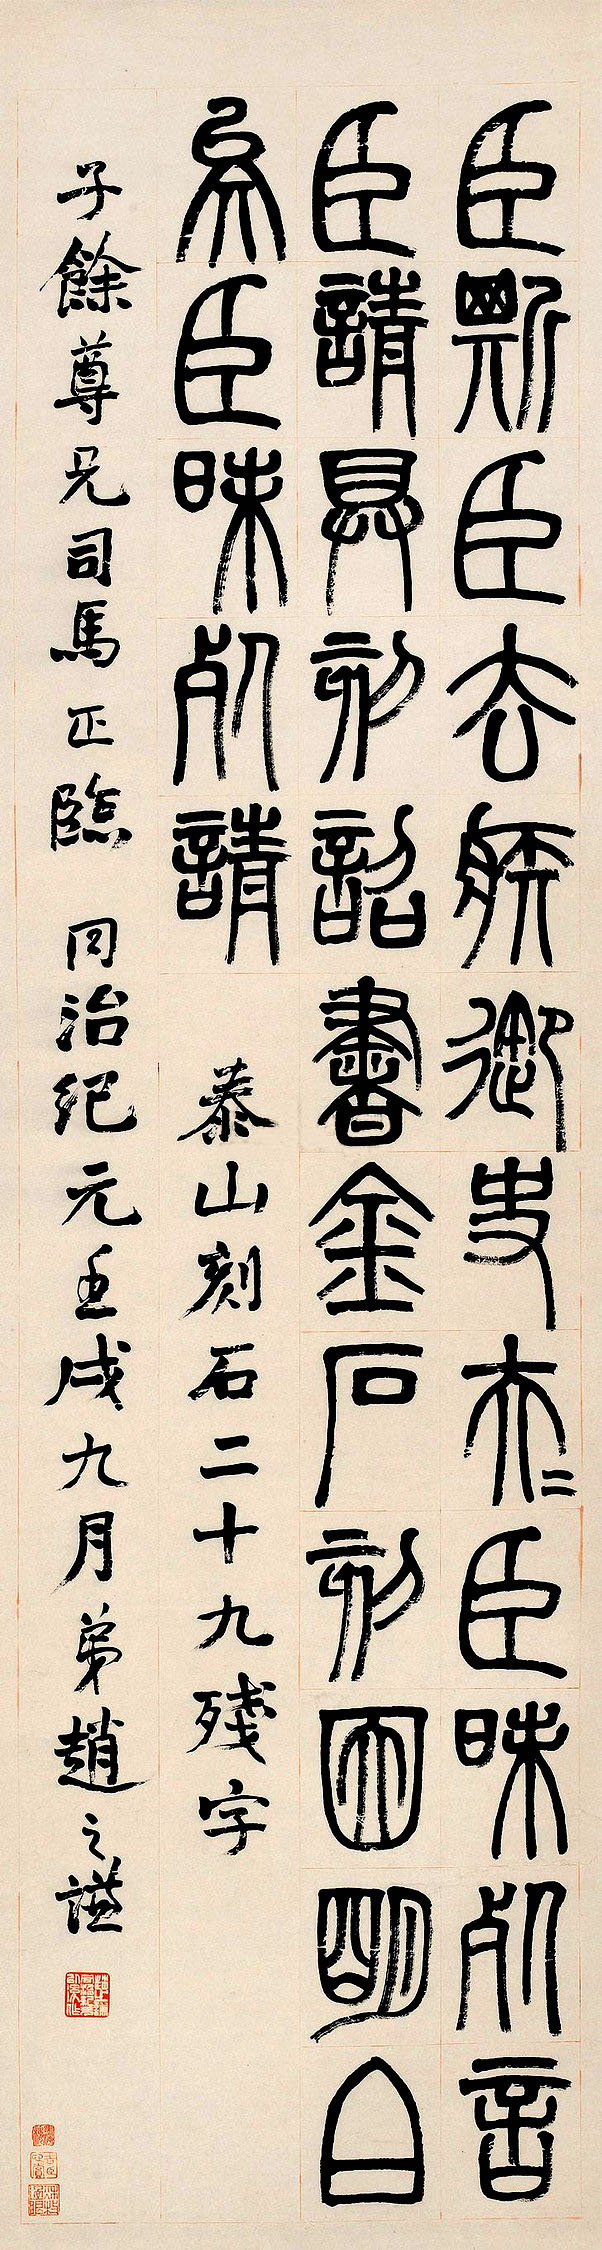 臣斯臣去疾御史夫〻臣昧死言
臣請具刻詔書金石刻因明白
矣臣昧死請 泰山刻石二十九殘字
子餘尊兄司馬正臨 同治紀元壬戌九月弟趙之謙